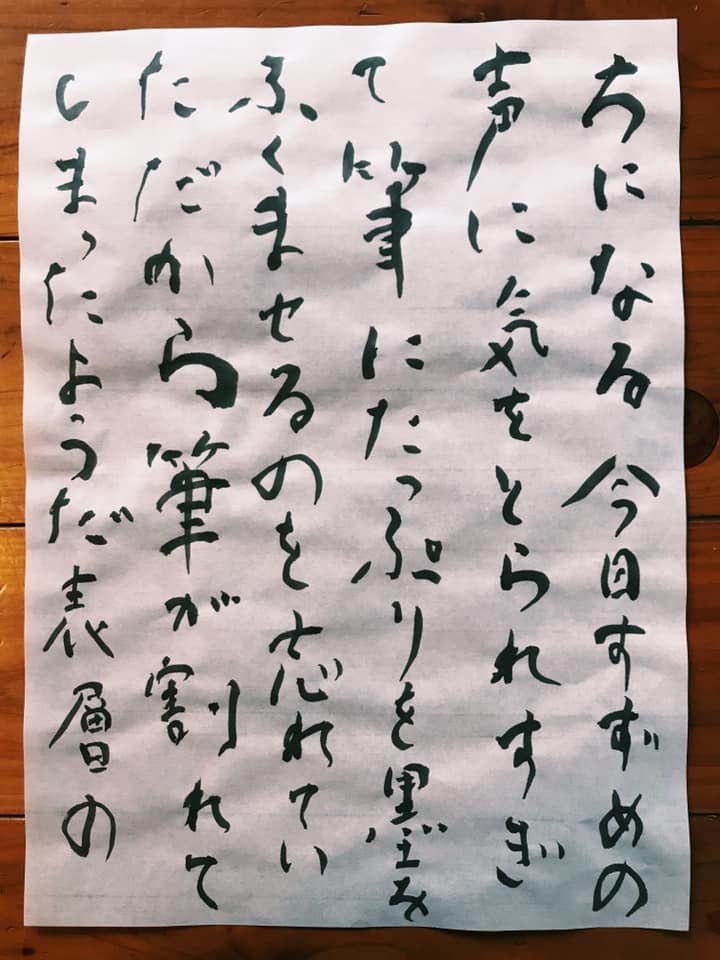 ちになる 今日すずめの
声に気をとられすぎ
て筆にたっぷりを墨を
ふくませるのを忘れてい
ただから筆が割れて
しまったようだ表層の